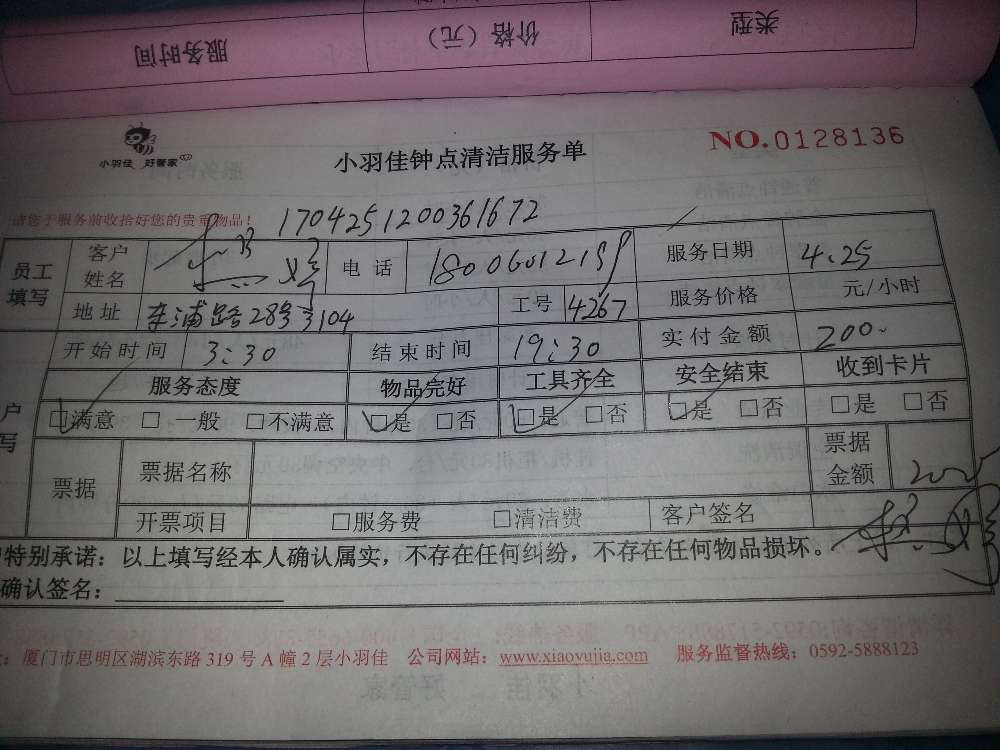 类型 价格（元） 服务时间
小羽佳 好管家
小羽佳钟点清洁服务单
NO.0128136
请您于服务前收拾好您的贵重物品！
1704251200361672
员工填写 客户姓名 电话 服务日期 4.25
地址 东浦路28号 104 工号 4267 服务价格 元/小时
开始时间 3:30 结束时间 19:30 实付金额 200
服务态度 物品完好 工具齐全 安全结束 收到卡片
户写 □满意 □一般 □不满意 □是 □否 □是 □否 □是 □否 □是 □否
票据 票据名称 票据金额
开票项目 □服务费 □清洁费 客户签名
特别承诺：以上填写经本人确认属实，不存在任何纠纷，不存在任何物品损坏。
确认签名：
厦门市思明区湖滨东路 319 号 A 幢 2 层小羽佳 公司网站：www.xiaoyujia.com 服务监督热线：0592-5888123